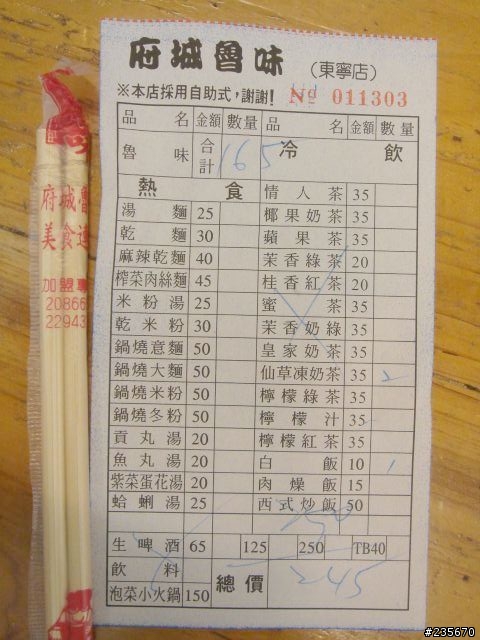 府城魯味 (東寧店)
※本店採用自助式，謝謝! № 011303
品名 金額 數量 品名 金額 數量
魯味 合計 165 冷飲
熱食 情人茶 35
湯麵 25 椰果奶茶 35
乾麵 30 蘋果茶 35
麻辣乾麵 40 茉香綠茶 20
榨菜肉絲麵 45 桂香紅茶 20
米粉湯 25 蜜茶 35
乾米粉 30 茉香奶綠 35
鍋燒意麵 50 皇家奶茶 35
鍋燒大麵 50 仙草凍奶茶 35 2
鍋燒米粉 50 檸檬綠茶 35
鍋燒冬粉 50 檸檬汁 35
貢丸湯 20 檸檬紅茶 35
魚丸湯 20 白飯 10 1
紫菜蛋花湯 20 肉燥飯 15
蛤蜊湯 25 西式炒飯 50
生啤酒 65 125 250 TB40
飲料 總價 245
泡菜小火鍋 150
府城魯
美食連
加盟專
20866
22943
#235670